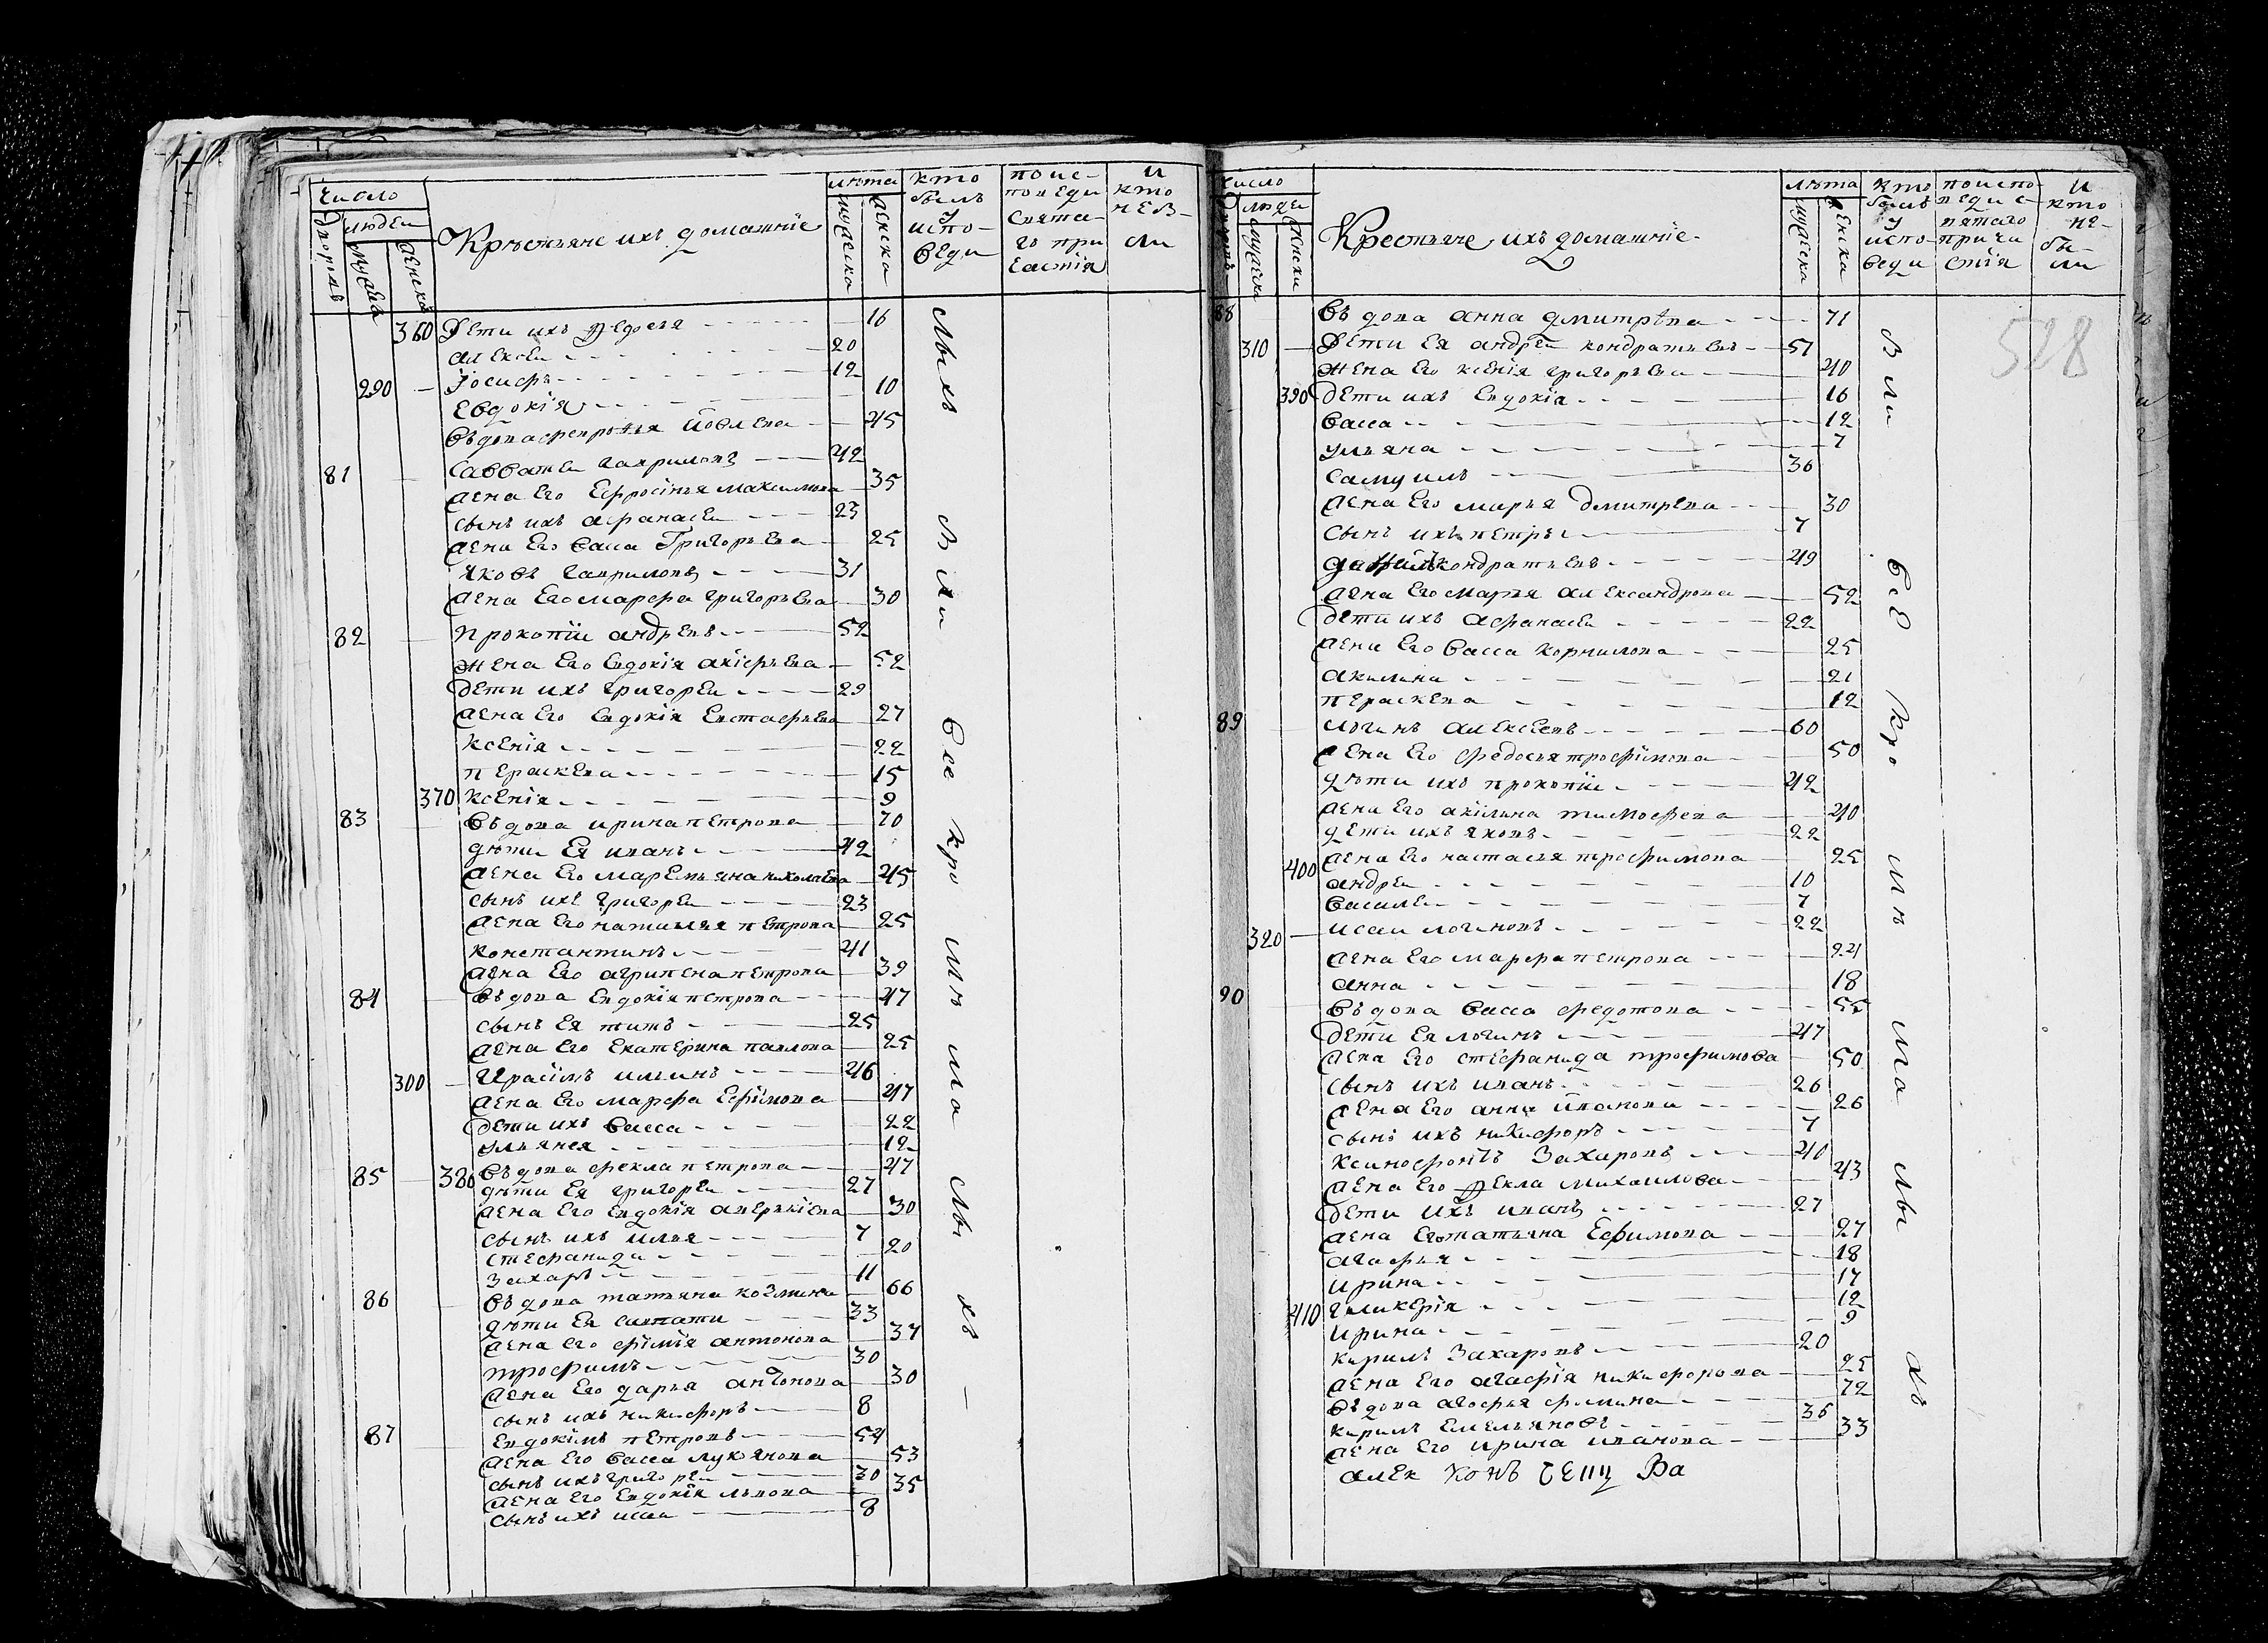 число
людеи
дворовъ
мужеска
женска
Крѣстьяне ихъ домашніе
лѣта
мужеска
женска
кто былъ у испо-веди
по ис-поведи свята-го при частія
и кто не в- ли
360 Дети ихъ Федосья 16
алексеи 20
290 Іосифъ 12
Евдокія 10
въдова февронья Іовлева 45
81 Савватеи гавриловъ 42
жена Его Ефросінья максимова 35
сынъ ихъ афанасеи 23
жена Его васа Григорьева 25
яковъ гавриловъ 31
жена Его марфа григорьева 30
82 Прокопіи андреевъ 52
жена Его Евдокія 52
дети ихъ григореи 29
жена Его Евдокія Евстафьева 27
ксенія 22
пераскева 15
370 ксенія 9
83 въдова ирина петрова 70
дѣти Ея иванъ 42
жена Его маремьяна николаева 45
сынъ ихъ григореи 23
жена Его наталья петрова 25
константинъ 41
жена Его агрипена петрова 39
84 въдова Евдокія петрова 47
сынъ Ея титъ 25
жена Его Екатерина павлова 25
300 Ирасімъ ильинъ 46
жена Его марфа Ефімова 47
дети ихъ васса 22
ульянея 12
85 380 въдова фекла петрова 47
дѣти Ея григореи 27
жена Его Евдокія аверькіева 30
сынъ ихъ илья 7
стефанида 20
захаръ 11
86 въдова татьяна козмина 66
дѣти Ея 33
жена его фімія антонова 37
трофимъ 30
жена Его дарья антонова 30
сынъ ихъ никифоръ 8
87 Евдокімъ петровъ 54
жена Его васса лукянова 53
сынъ ихъ григореи 30
жена Его Евдокія львова 35
сынъ ихъ исаи 8
лыхъ
В ли все кро мѣ ма лы хъ
число
людеи
мужеска
женски
Крестьяне ихъ домашніе
лѣта
мужеска
женска
кто былъ у испо-веди
по испо-веди с-вятаго прича стія
и кто не-бы-ли
528
88 въдова анна дмитрѣва 71
310 Дети Ея андреи кондратьевъ 57
жена Его ксенія григорьева 40
390 дети ихъ Евдокія 16
васса 12
ульяна 7
самуилъ 36
жена Его марья дмитрева 30
сынъ ихъ петръ 7
данилъ кондратьевъ 49
жена Его марья александрова 52
дети ихъ афанасеи 22
жена Его васса корнилова 25
акилина 21
пераскева 12
89 логинъ алексеевъ 60
жена Его федосья трофімова 50
дѣти ихъ прокопіи 42
жена Его акілина тимофева 40
дети ихъ яковъ 22
400 жена Его настасья трофимова 25
андреи 10
василеи 7
320 исаи логиновъ 22
жена Его марфа петрова 24
анна 18
90 въдова васса федотова 55
дети Ея логинъ 47
жена Его стефанида трофимова 50
сынъ ихъ иванъ 26
жена Его анна иванова 26
сынъ ихъ никифоръ 7
ксинофонтъ Захаровъ 40
жена Его Фекла михаилова 43
дети ихъ иванъ 27
жена Его татьяна Ефимова 27
агафья 18
ирина 17
410 гликерія 12
ирина 9
кирилъ Захаровъ 20
жена Его агафія никифорова 25
въдова агафья фомина 72
кирилъ Емельяновъ 36
жена Его ирина иванова 33
алек конъ
В ли
все кро мѣ ма лы хъ